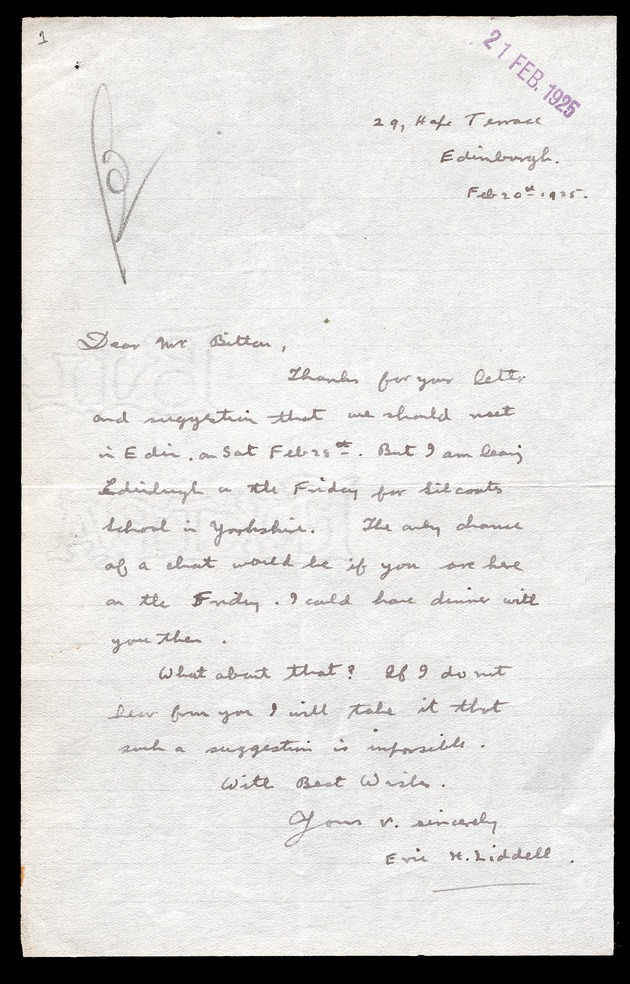 1
21 FEB. 1925
29, Hope Terrace
Edinburgh.
Feb 20st. 1925.
Dear Mr Bitton,
Thanks for your letter
and suggestion that we should meet
in Edin. on Sat Feb 28st. But I am leaving
Edinburgh on the Friday for Silcoats
School in Yorkshire. The only chance
of a chat would be if you are here
on the Friday. I could have dinner with
you then.
What about that? If I do not
hear from you I will take it that
such a suggestion is impossible.
With Best Wishes.
Yours v. sincerely
Eric H. Liddell.